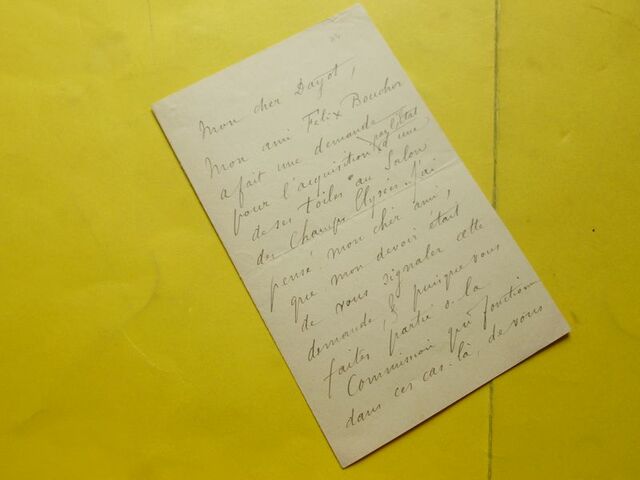 Mon cher Dayot,
Mon ami Félix Bouchor
a fait une demande
par l'Etat
pour l'acquisition d'une
de ses toiles au Salon
des Champs Elysées. J'ai
pensé mon cher ami,
que mon devoir était
de vous signaler cette
demande, & puisque vous
faites partie de la
Commission qui fonctionne
dans ces cas-là, de vous